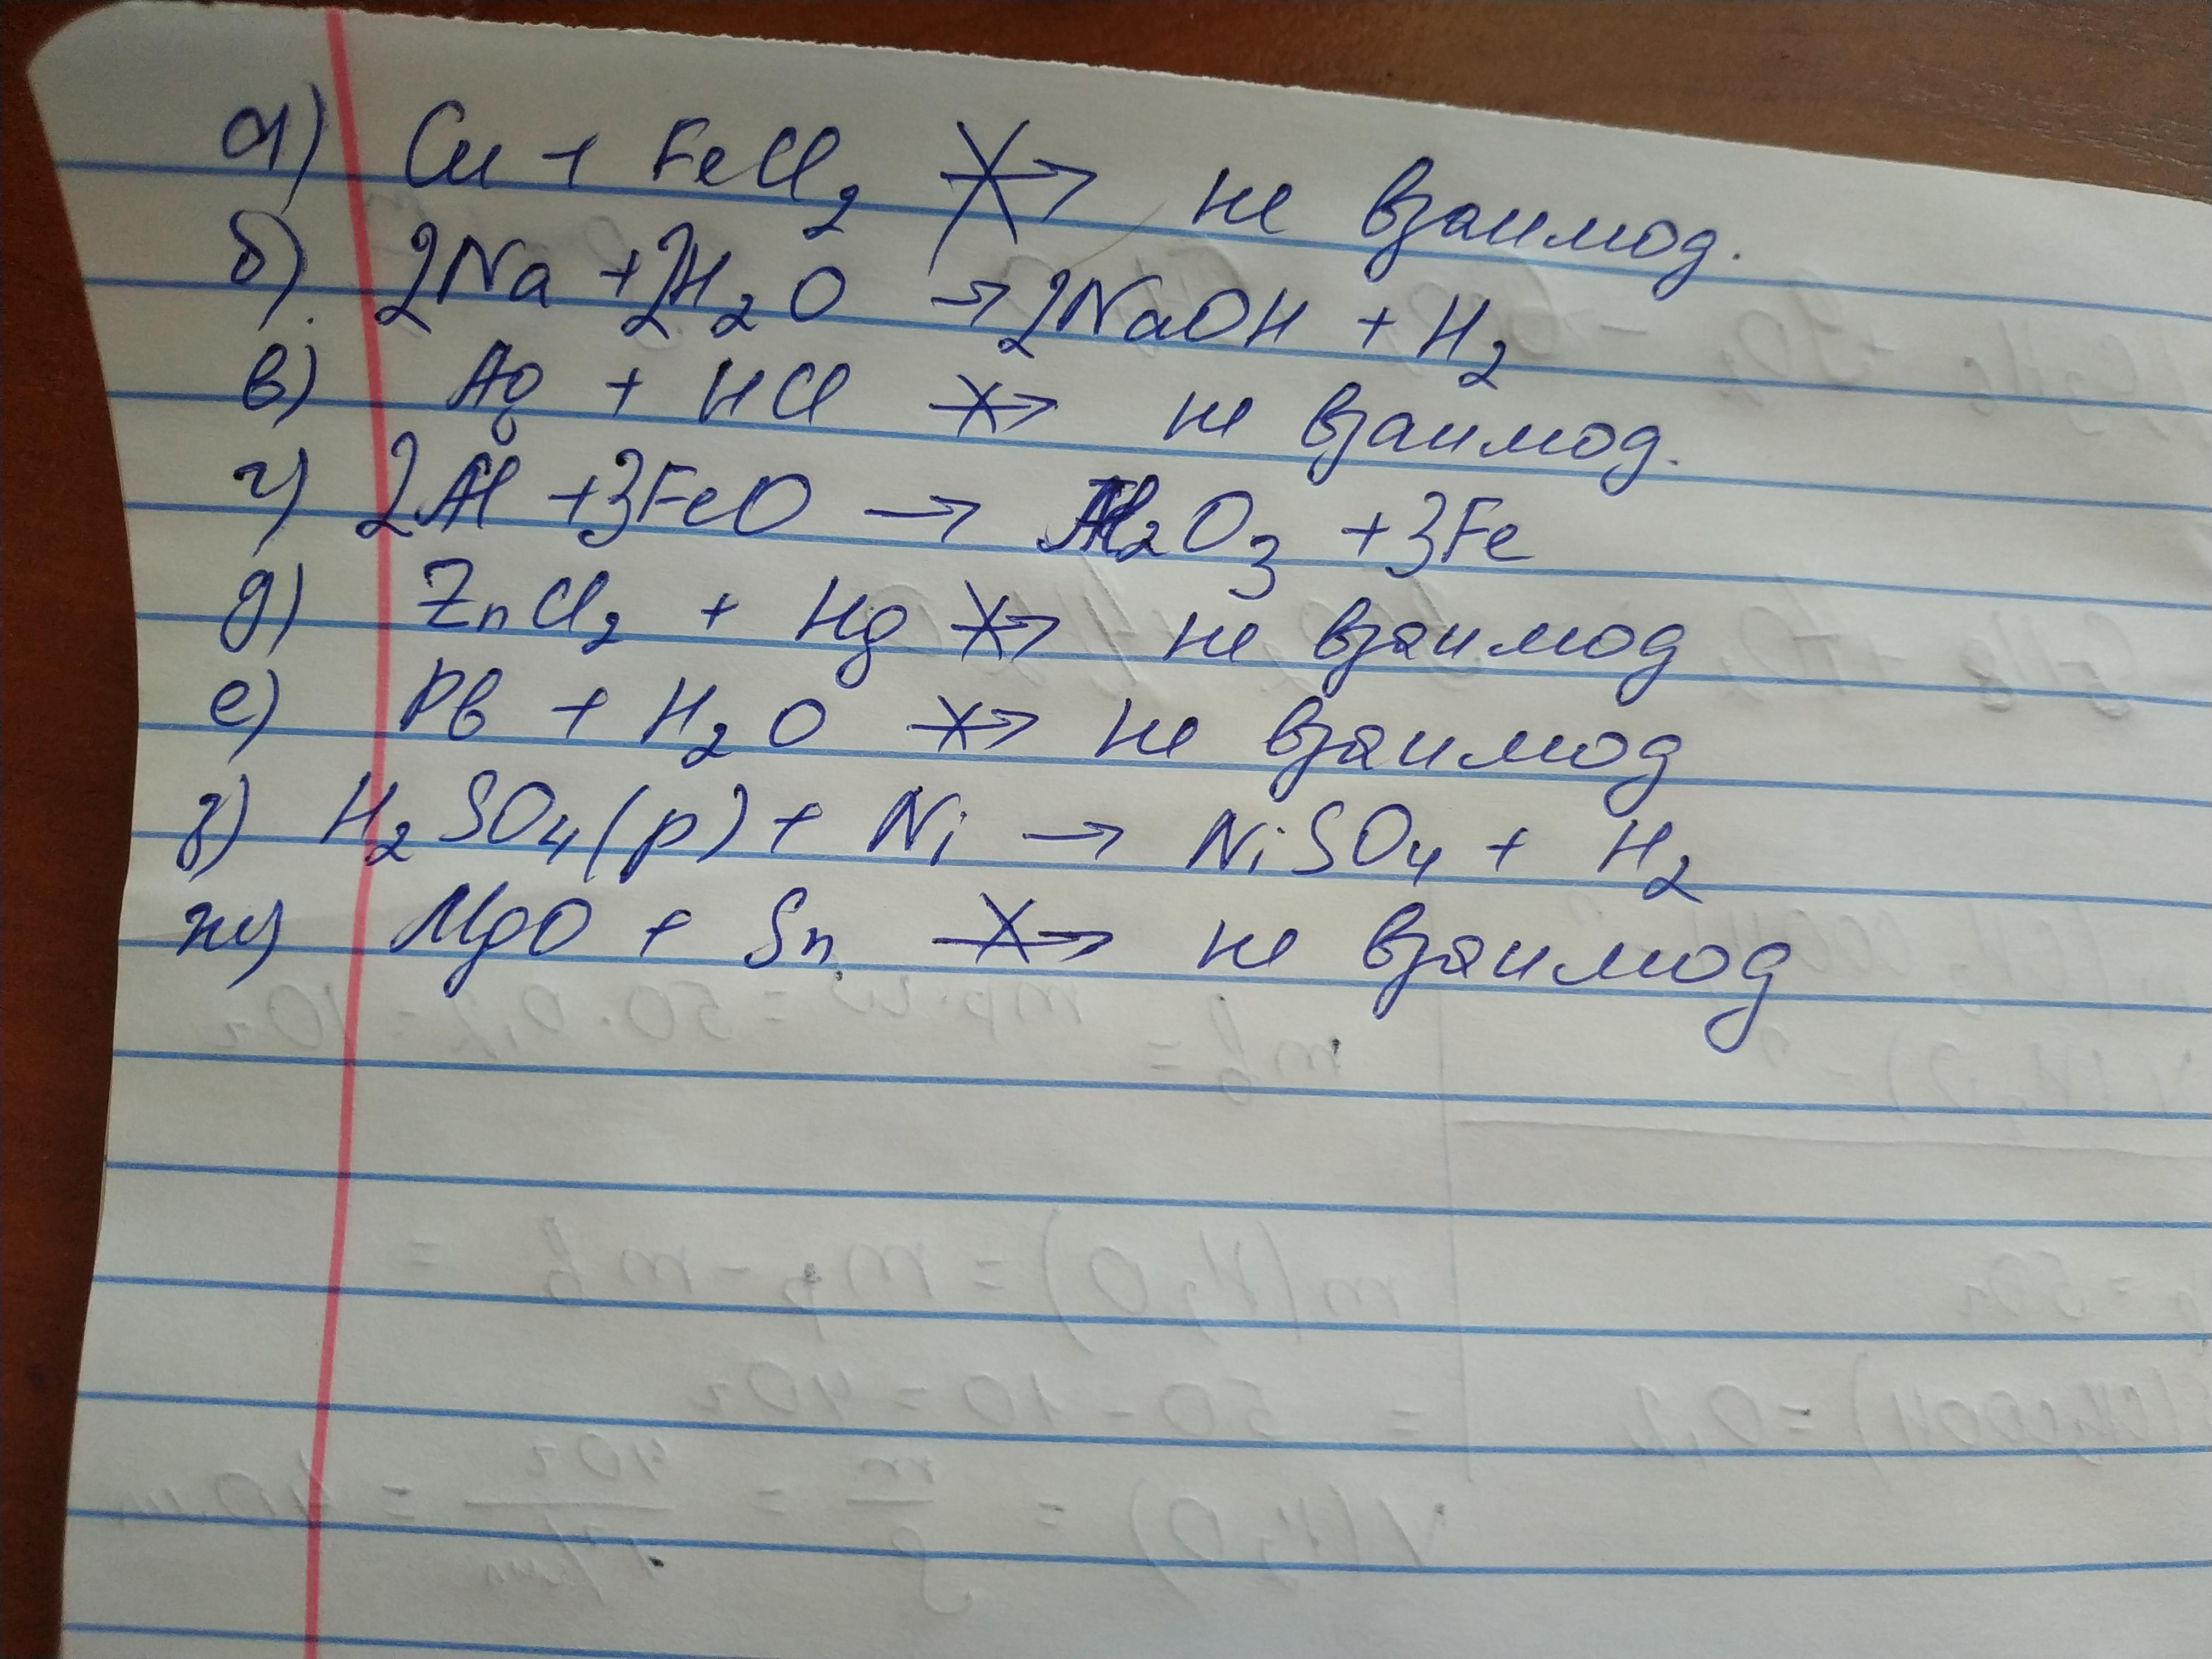 а) Cu + FeCl2 → не взаимод.
б) 2Na + 2H2O → 2NaOH + H2
в) Ag + HCl → не взаимод.
г) 2Al + 3FeO → Al2O3 + 3Fe
д) ZnCl2 + Hg → не взаимод
е) Pb + H2O → не взаимод
з) H2SO4(р) + Ni → NiSO4 + H2
ж) MgO + Sn → не взаимод